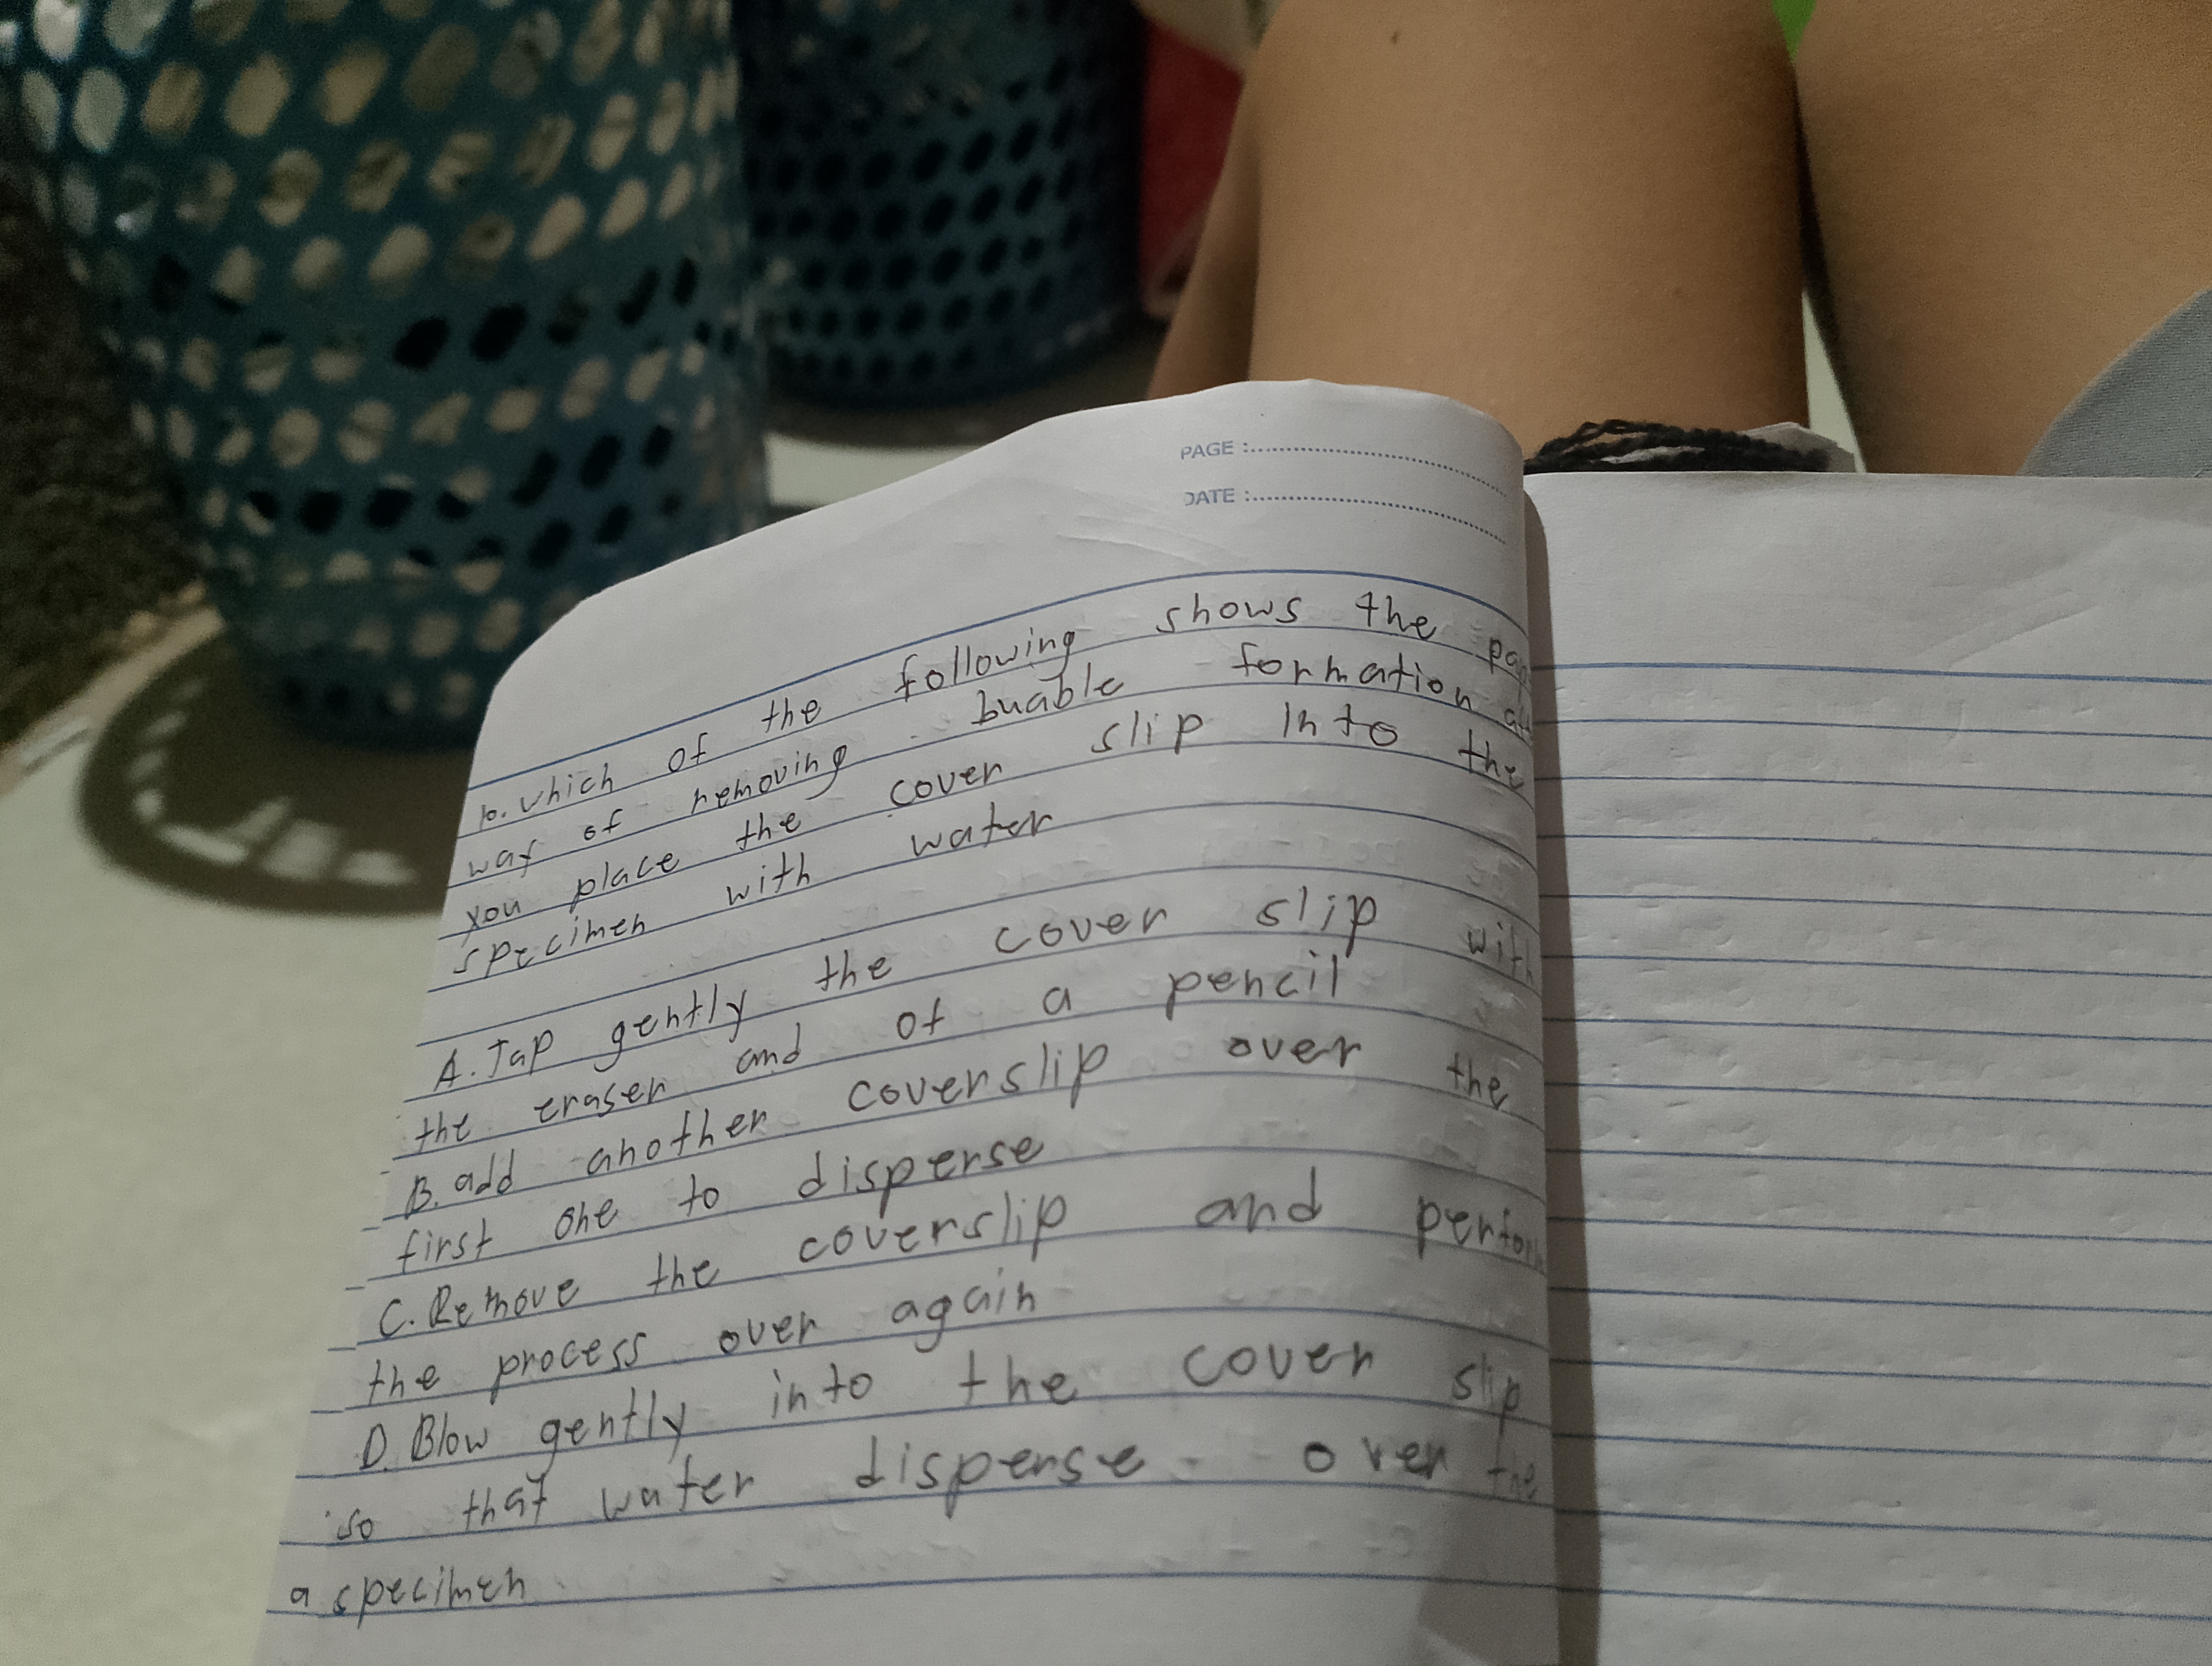 PAGE :
DATE :
10. which of the following shows the
way of removing buable formation
you place the cover slip Into the
specimen with water
A. Tap gently the cover slip with
the eraser and of a pencil
B. add another coverslip over the
first one to disperse
C. Remove the coverslip and perform
the process over again
D. Blow gently into the cover slip
so that water disperse over the
a specimen